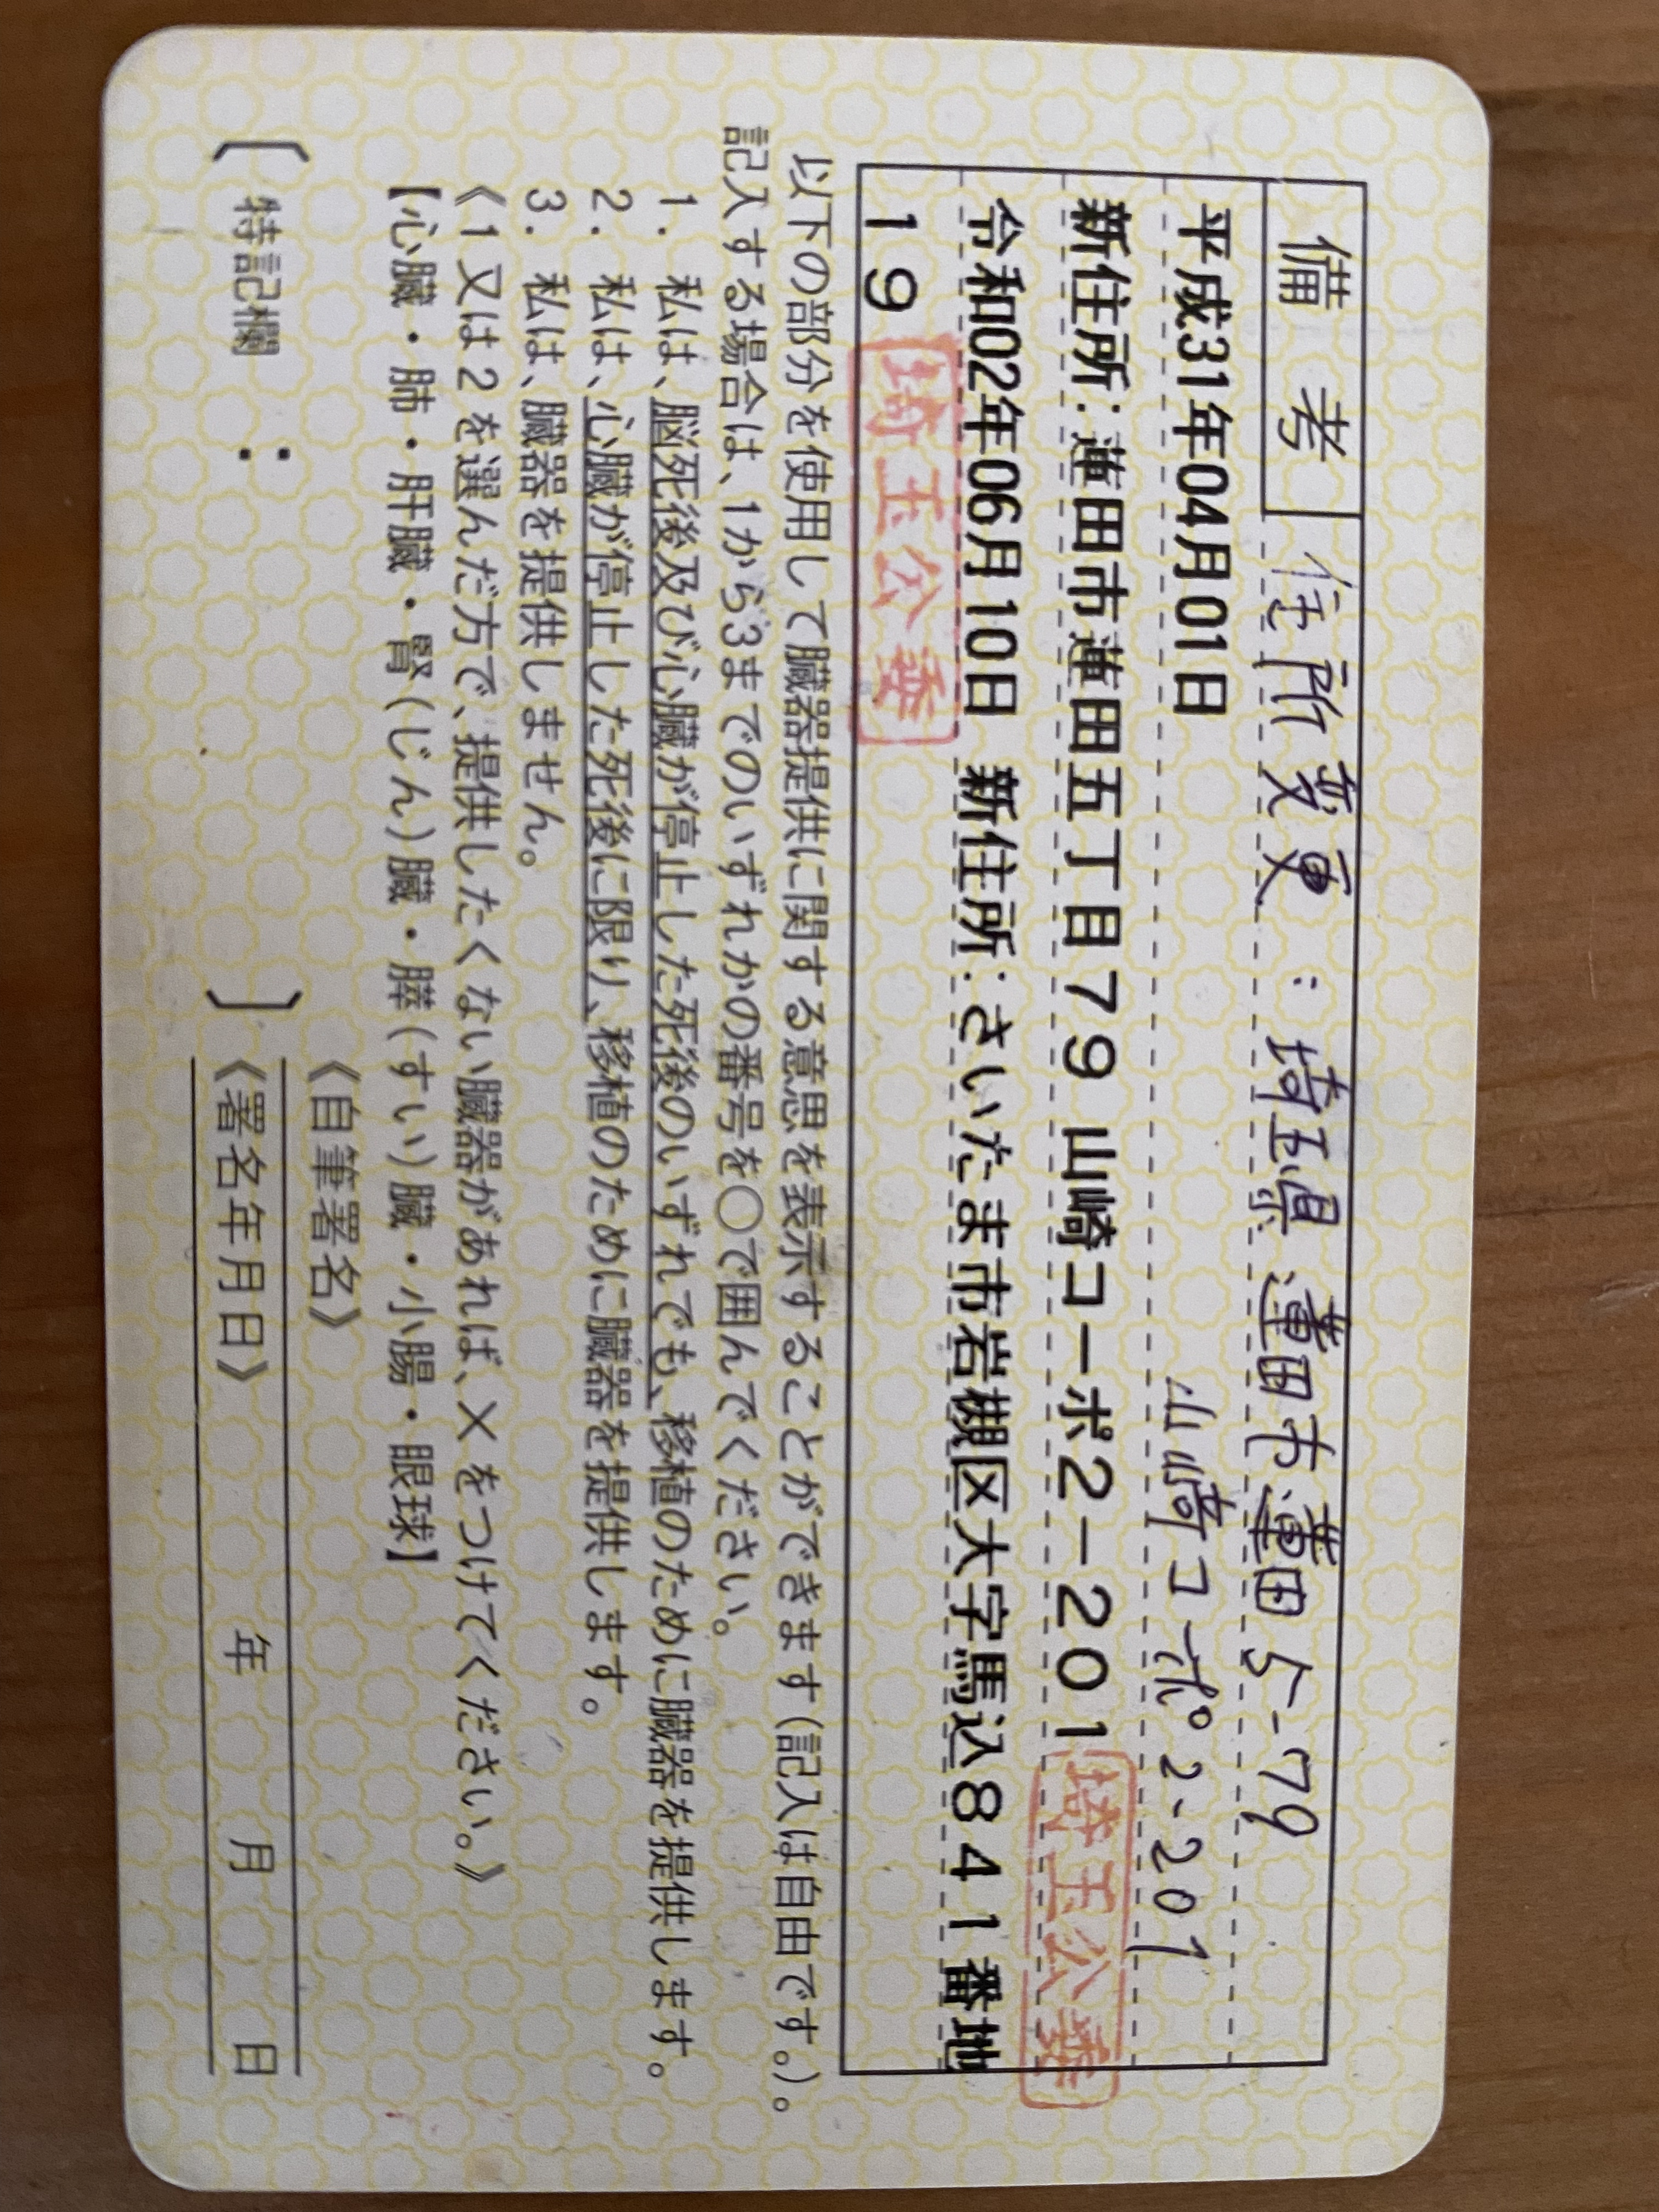 備考
住所変更：埼玉県蓮田市蓮田5-79
山﨑コーポ2-201
平成31年04月01日
新住所：蓮田市蓮田五丁目79 山崎コーポ2-201
埼玉公委
令和02年06月10日 新住所：さいたま市岩槻区大字馬込841番地
19
埼玉公委
以下の部分を使用して臓器提供に関する意思を表示することができます(記入は自由です。)。
記入する場合は、1から3までのいずれかの番号を〇で囲んでください。
1. 私は、脳死後及び心臓が停止した死後のいずれでも、移植のために臓器を提供します。
2. 私は、心臓が停止した死後に限り、移植のために臓器を提供します。
3. 私は、臓器を提供しません。
《1又は2を選んだ方で、提供したくない臓器があれば、×をつけてください。》
【心臓・肺・肝臓・腎(じん)臓・膵(すい)臓・小腸・眼球】
《自筆署名》
〔特記欄： 〕
《署名年月日》 年 月 日